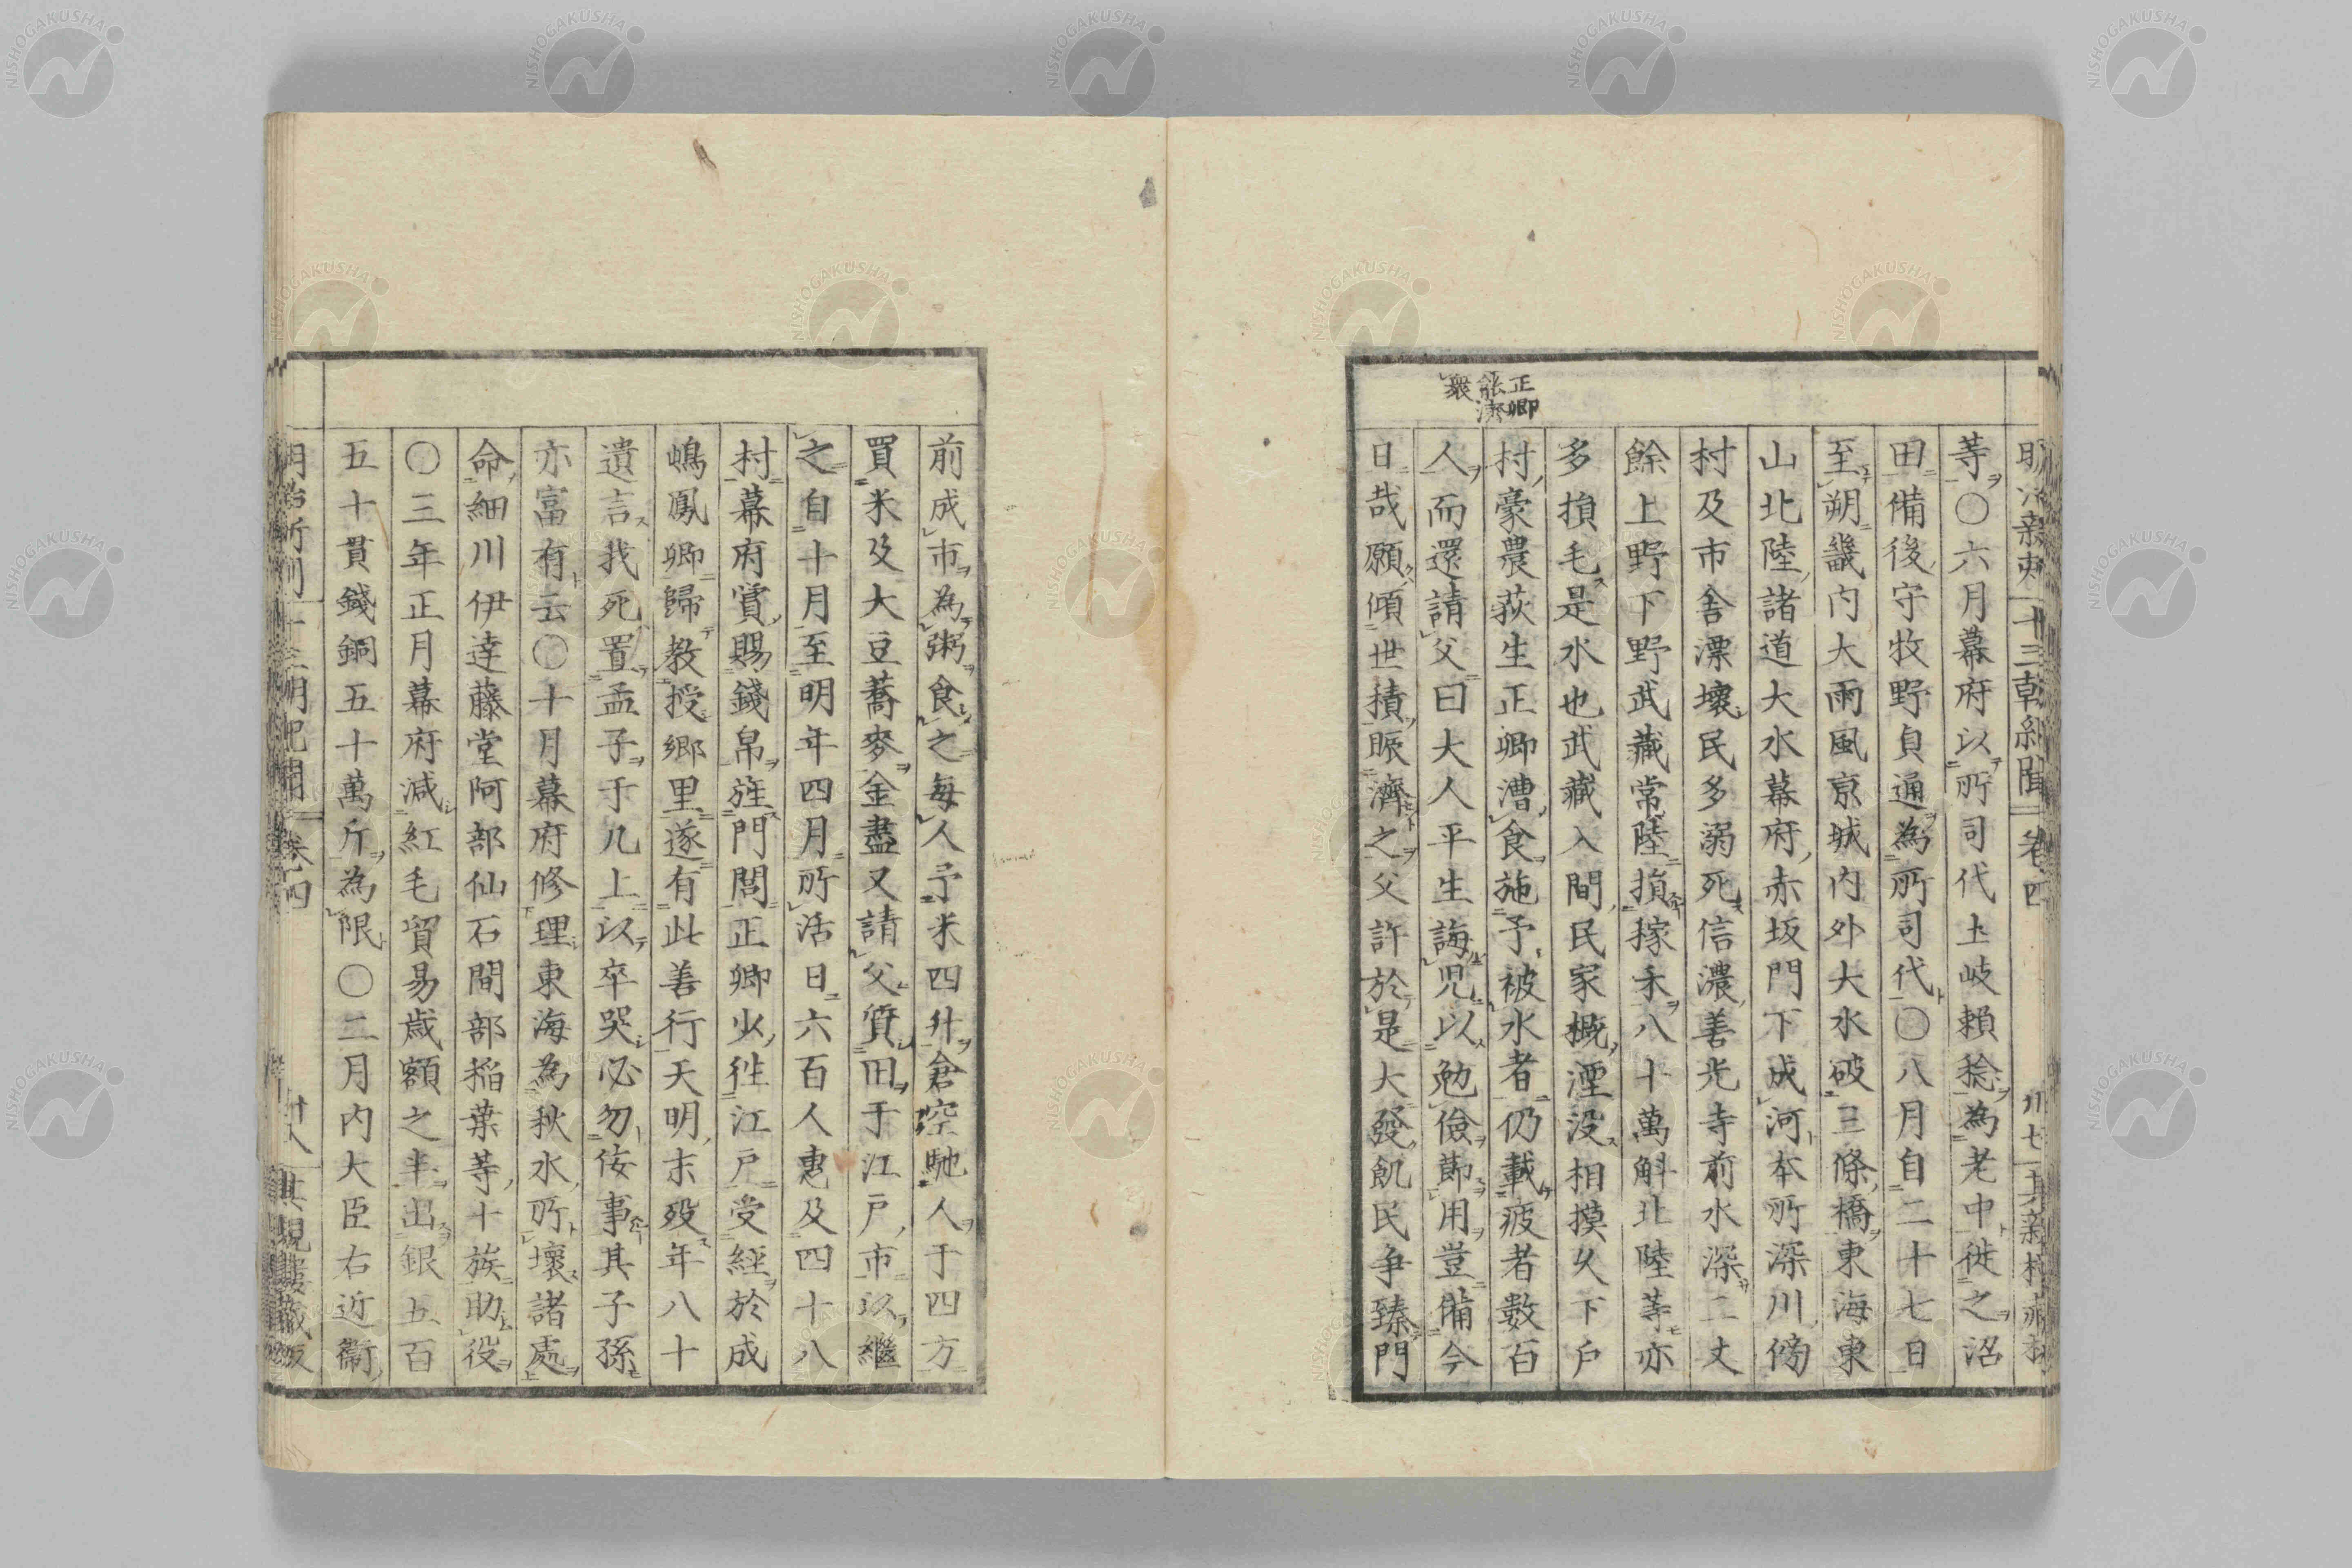 明治新刻 十三朝紀聞 卷四
等○六月幕府以所司代土岐賴稔為老中徙之沼
田備後守牧野貞通為所司代○八月自二十七日
至朔畿内大雨風京城内外大水破三條橋東海東
山北陸諸道大水幕府赤坂門下成河本所深川傍
村及市舍漂壞民多溺死信濃善光寺前水深二丈
餘上野下野武藏常陸損稼禾八十萬斛北陸等亦
多損毛是水也武藏入間民家概湮沒相摸久下戶
村豪農荻生正卿漕食施予被水者仍載疲者數百
人而還請父曰大人平生誨児以勉儉節用豈備今
日哉願傾世積賑濟之父許於是大發飢民争臻門
正卿
能濟
衆
前成市為粥食之每人予米四升倉空馳人于四方
買米及大豆蕎麥金盡又請父質田于江戶市以繼
之自十月至明年四月所活日六百人惠及四十八
村幕府賞賜錢帛旌門閭正卿少徃江戶受經於成
嶋鳳卿歸教授鄉里遂有此善行天明末歿年八十
遺言我死置孟子于几上以卒哭必勿侫事其子孫
亦富有云○十月幕府修理東海為秋水所壞諸處
命細川伊達藤堂阿部仙石間部稲葉等十族助役
○三年正月幕府減紅毛貿易歳額之半出銀五百
五十貫錢銅五十萬斤為限○二月内大臣右近衞
明治新刻 十三朝紀聞 卷四
NISHOGAKUSHA